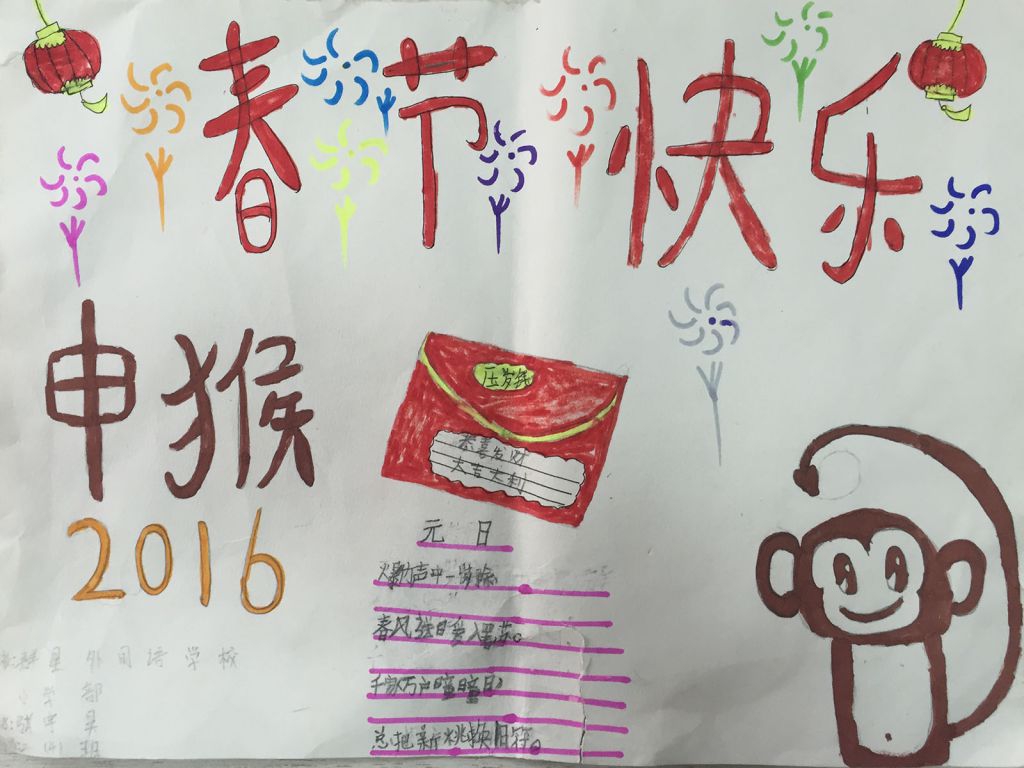 春节快乐
申猴
2016
压岁钱
恭喜发财
大吉大利
元日
爆竹声中一岁除,
春风送日爱入屠苏。
千家万户曈曈日,
总把新桃换旧符。
群星外国语学校
小学部